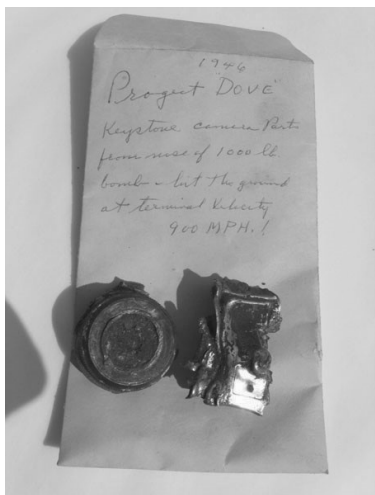 1946
Project "DOVE"
Keystone camera Parts
from nose of 1000 lb
bomb - hit the ground
at terminal Velocity
900 MPH.!